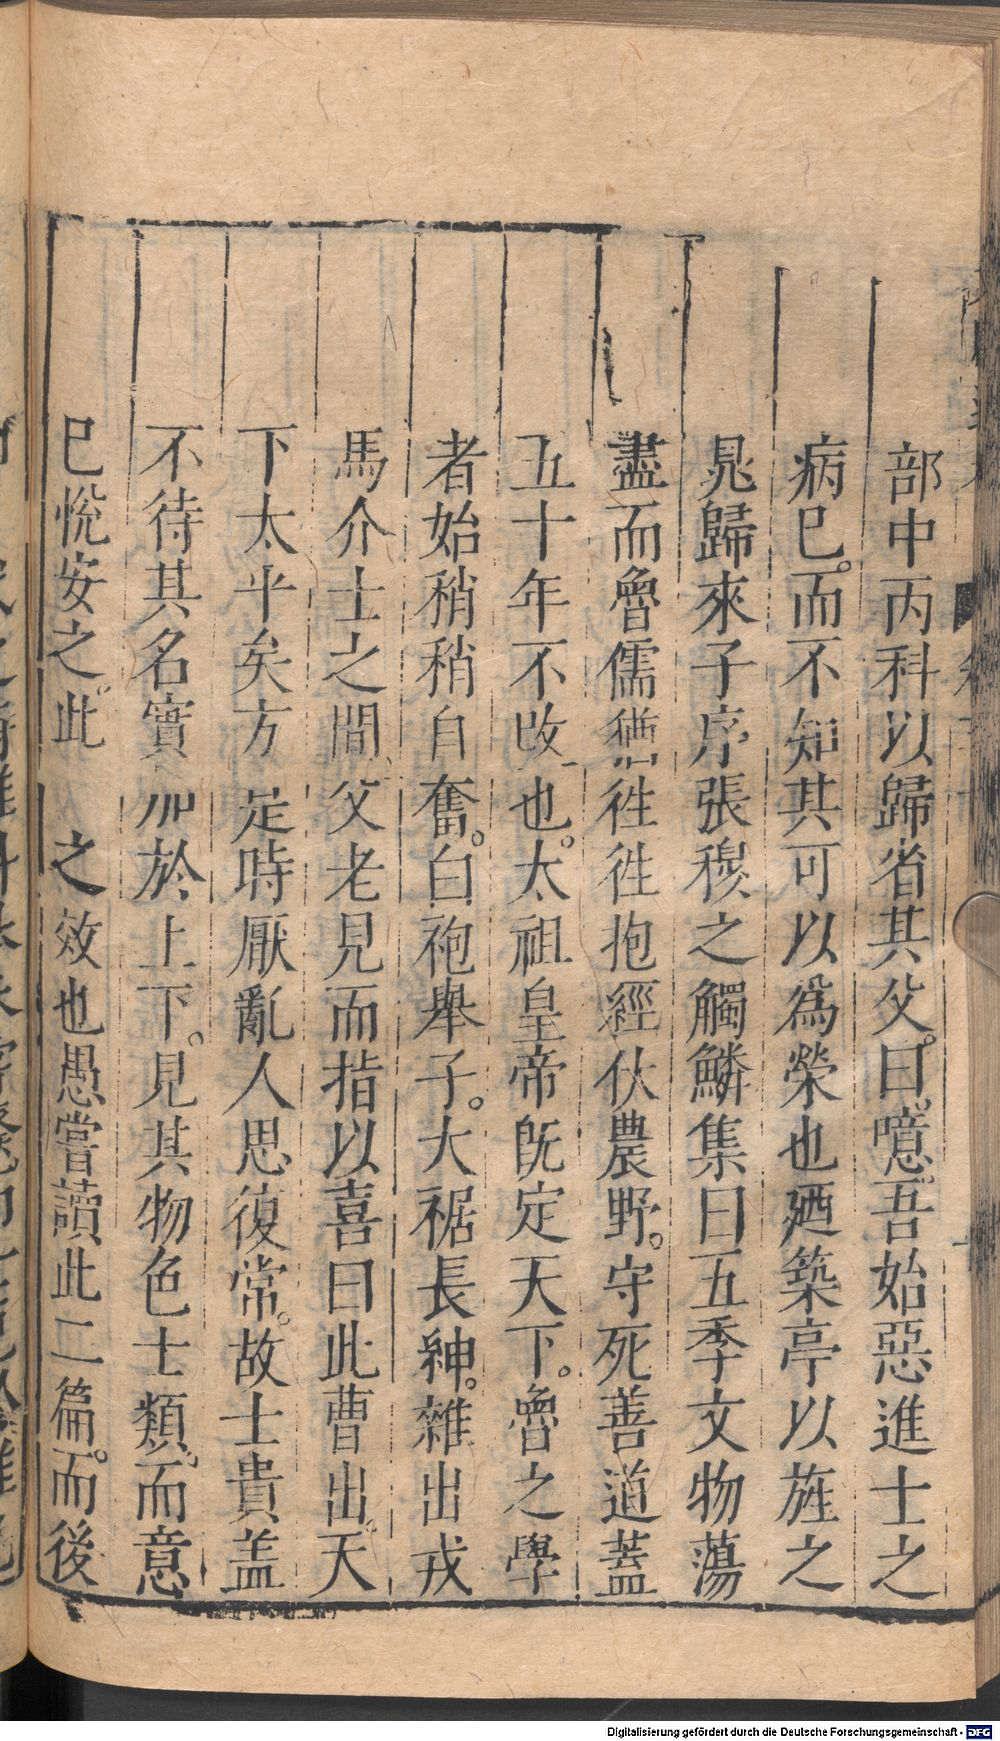 部中丙科以歸省其父。曰。噫。吾始惡進士之
病已。而不知其可以爲榮也廼築亭以旌之
晁歸來子序張穆之觸鱗集曰五季文物蕩
盡而魯儒猶徃徃抱經伏農野。守死善道蓋
五十年不改也。太祖皇帝旣定天下。魯之學
者始稍稍自奮。白袍舉子。大裾長紳。雜出戎
馬介士之間。父老見而指以喜曰此曹出。天
下太平矣方是時厭亂人思復常。故士貴盖
不待其名實加於上下。見其物色士類。而意
已悅安之。此之效也愚嘗讀此二篇。而後
Digitalisierung gefördert durch die Deutsche Forschungsgemeinschaft - DFG